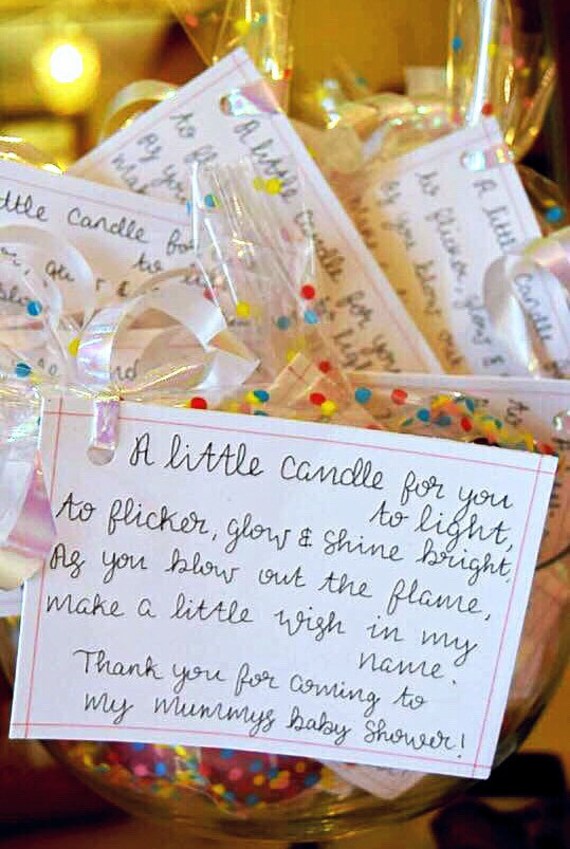 A little candle for you
to light,
to flicker, glow & shine bright,
As you blow out the flame,
make a little wish in my
name.
Thank you for coming to
my mummys baby shower!
A little candle for you
to light
to fl
As you
mak
ttle candle fo
to
A little
candle
to flicker, glow &
As you blow out